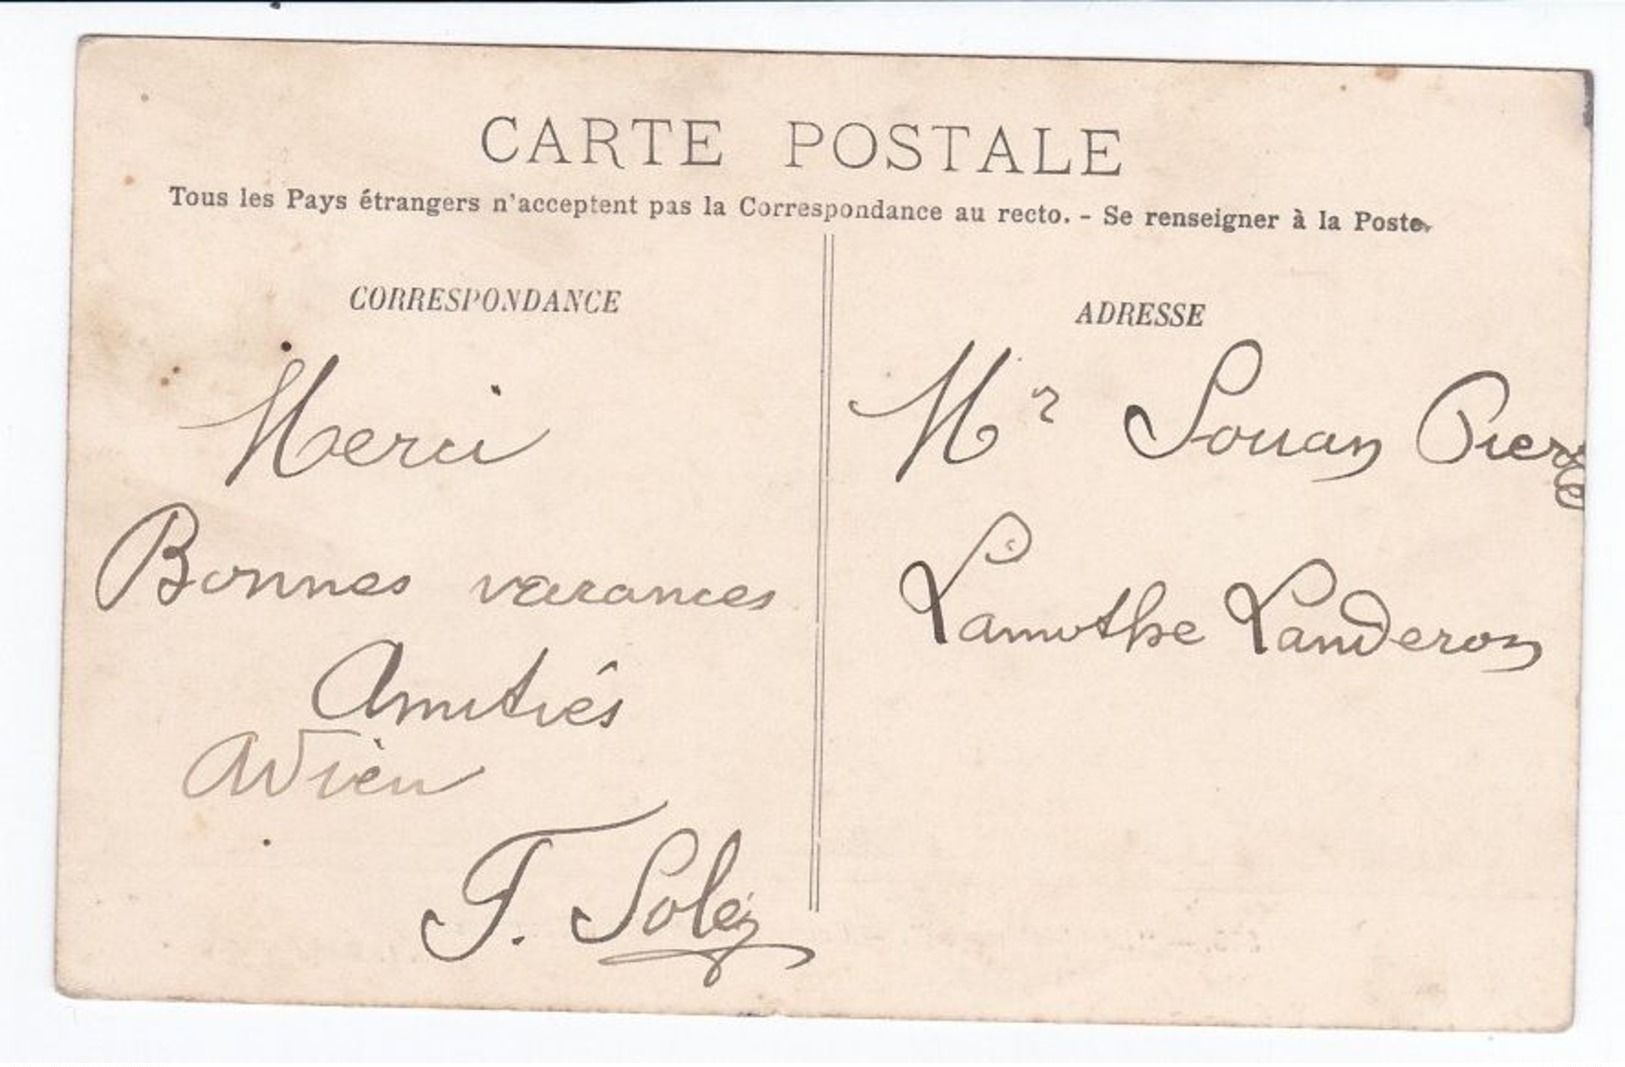 CARTE POSTALE
Tous les Pays étrangers n'acceptent pas la Correspondance au recto. - Se renseigner à la Poste.
CORRESPONDANCE
Merci
Bonnes vacances
Amitiés
Adieu
F. Solez
ADRESSE
Mr Souan Pierre
Lamothe Landeron